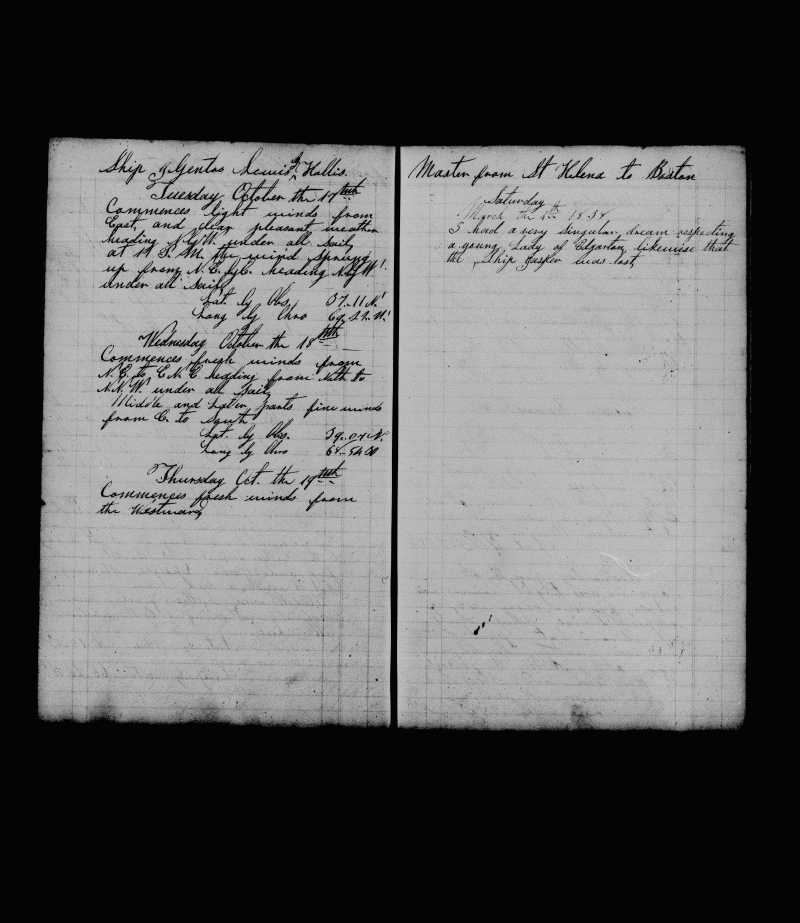 Ship Gentoo Lewis G Hollis.
Tuesday October the 17teth
Commences light winds from
East, and clear pleasant weather
heading N by W. under all sail,
at 11 P.M. the wind sprung
up from N.E. by E. heading N by W!
under all sail,
Lat by Obs. 37..11 N!
Long by Chro 69..21. W!
Wednesday October the 18teth
Commences fresh winds from
N.E. to E.N.E heading from Nth to
N.N.W. under all sail,
Middle and Later parts fine winds
from E. to South
Lat. by Obs. 39..07 N.
Long by Chro 68..54 00
Thursday Oct. the 19teth
Commences fresh winds from
the Westward,
Master from St Helena to Boston
Saturday
March the 1838,
I had a very singular dream respecting
a young Lady of Edgarton, likewise that
the Ship Jasper was lost,